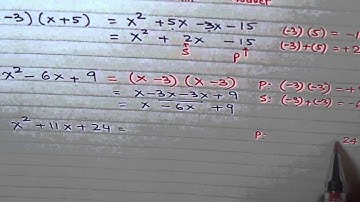 -3)(x+5) = x² + 5x - 3x - 15 (-3)(5) = -1
= x² + 2x - 15 (-3)+(5) = +2
S P
x² - 6x + 9 = (x-3)(x-3) P: (-3)(-3) = +9
= x - 3x - 3x + 9 S: (-3)+(-3) = -
= x - 6x + 9
x² + 11x + 24 = P: 24